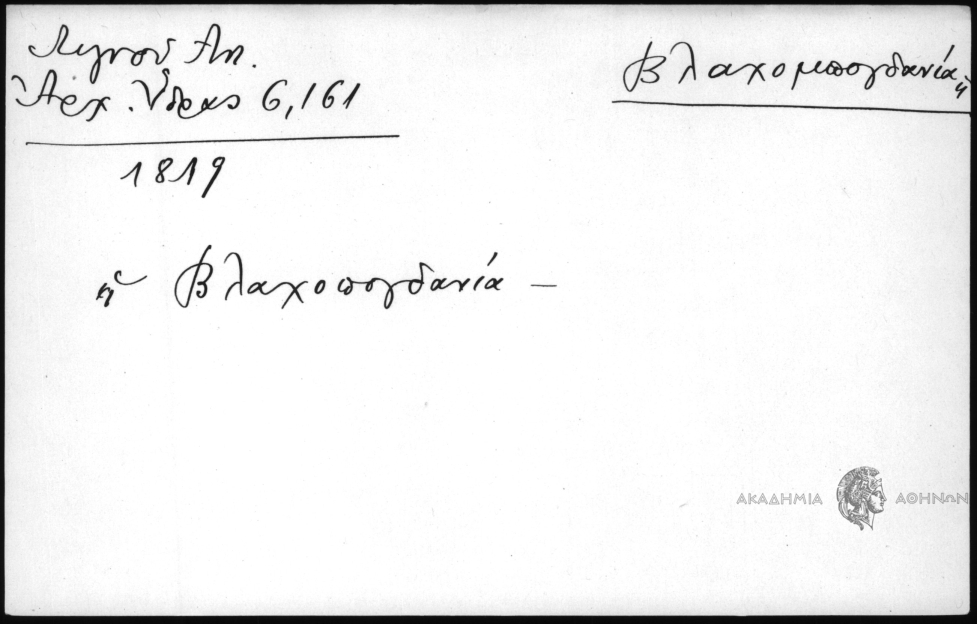 Λιγνού Αν.
Ἀρχ. Ὕδρας 6,161
1819
Βλαχομπογδανία
ἡ
ἡ Βλαχοπογδανία —
ΑΚΑΔΗΜΙΑ ΑΘΗΝΩΝ